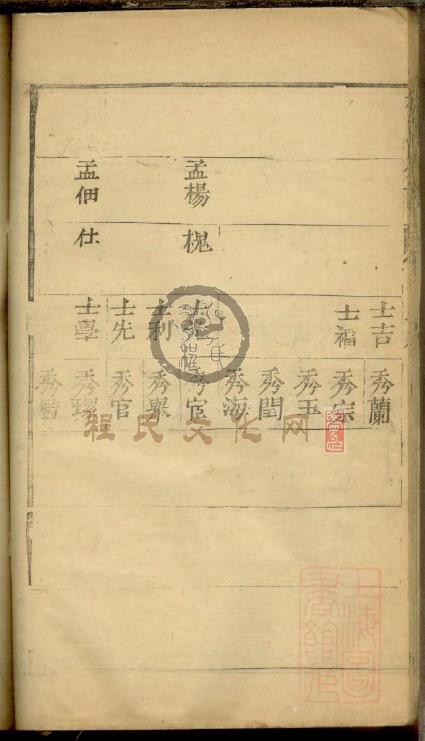 孟楊 槐
孟佃 仕
士吉 士福 士利 士先 士學
秀蘭 秀宗 秀玉 秀閏 秀海 秀宦 秀眾 秀官
程氏文化网
上海圖書館藏